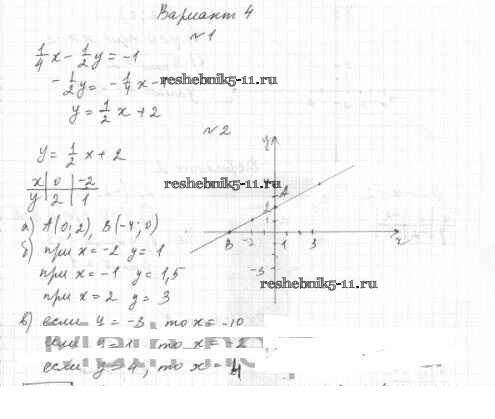 Вариант 4
№1
1/4 x - 1/2 y = -1
- 1/2 y = - 1/4 x -
reshebnik5-11.ru
y = 1/2 x + 2
№2
y = 1/2 x + 2
x | 0 | -2
y | 2 | 1
reshebnik5-11.ru
y
A
2
1
B -2 1 3 x
-3
reshebnik5-11.ru
а) A(0; 2), B(-4; 0)
б) при x = -2 y = 1
при x = -1 y = 1,5
при x = 2 y = 3
в) если y = -3, то x = -10
если y = 1, то x = -2
если y = 4, то x = 4